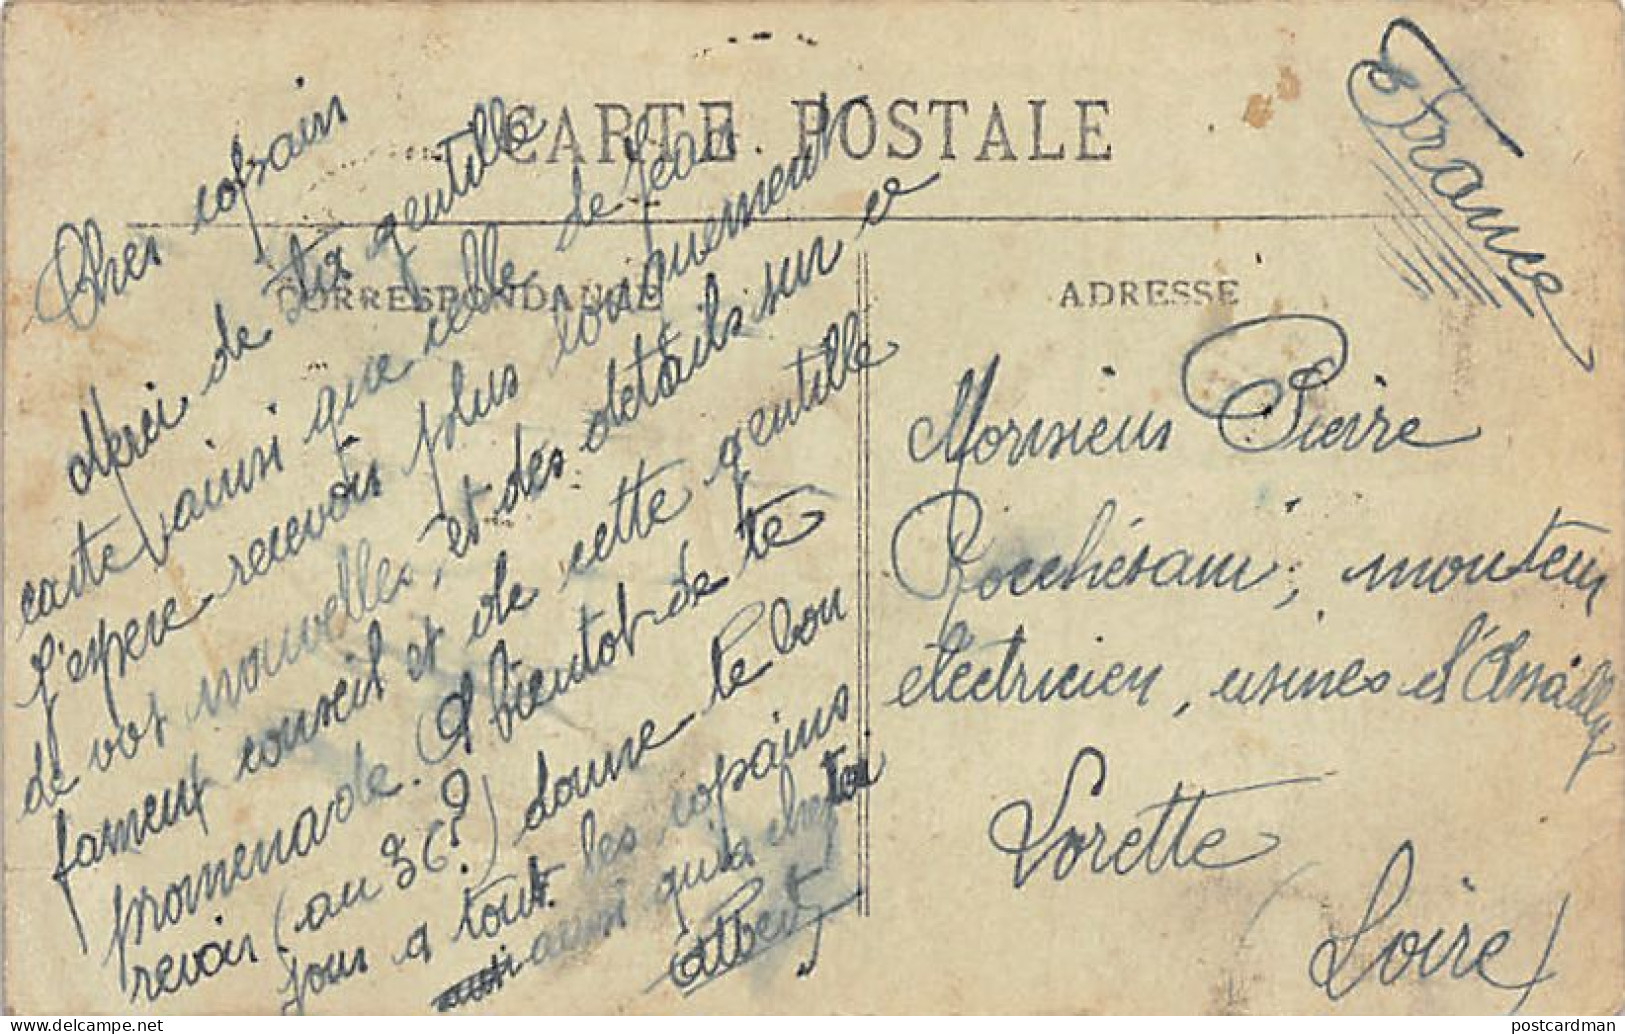 CARTE POSTALE
CORRESPONDANCE
ADRESSE
France
Cher copain
Merci de ta gentille
carte ainsi que celle de Jean
J'espere recevoir plus longuement
de vos nouvelles, et des détails sur ce
fameux conseil et de cette gentille
promenade. A bientot de te
revoir (au 36?) donne le bon
jour a tout les copains
ainsi qu'a
Albert
Monsieur Pierre
monteur
électricien, usines d'Assailly
Lorette
(Loire)
postcardman